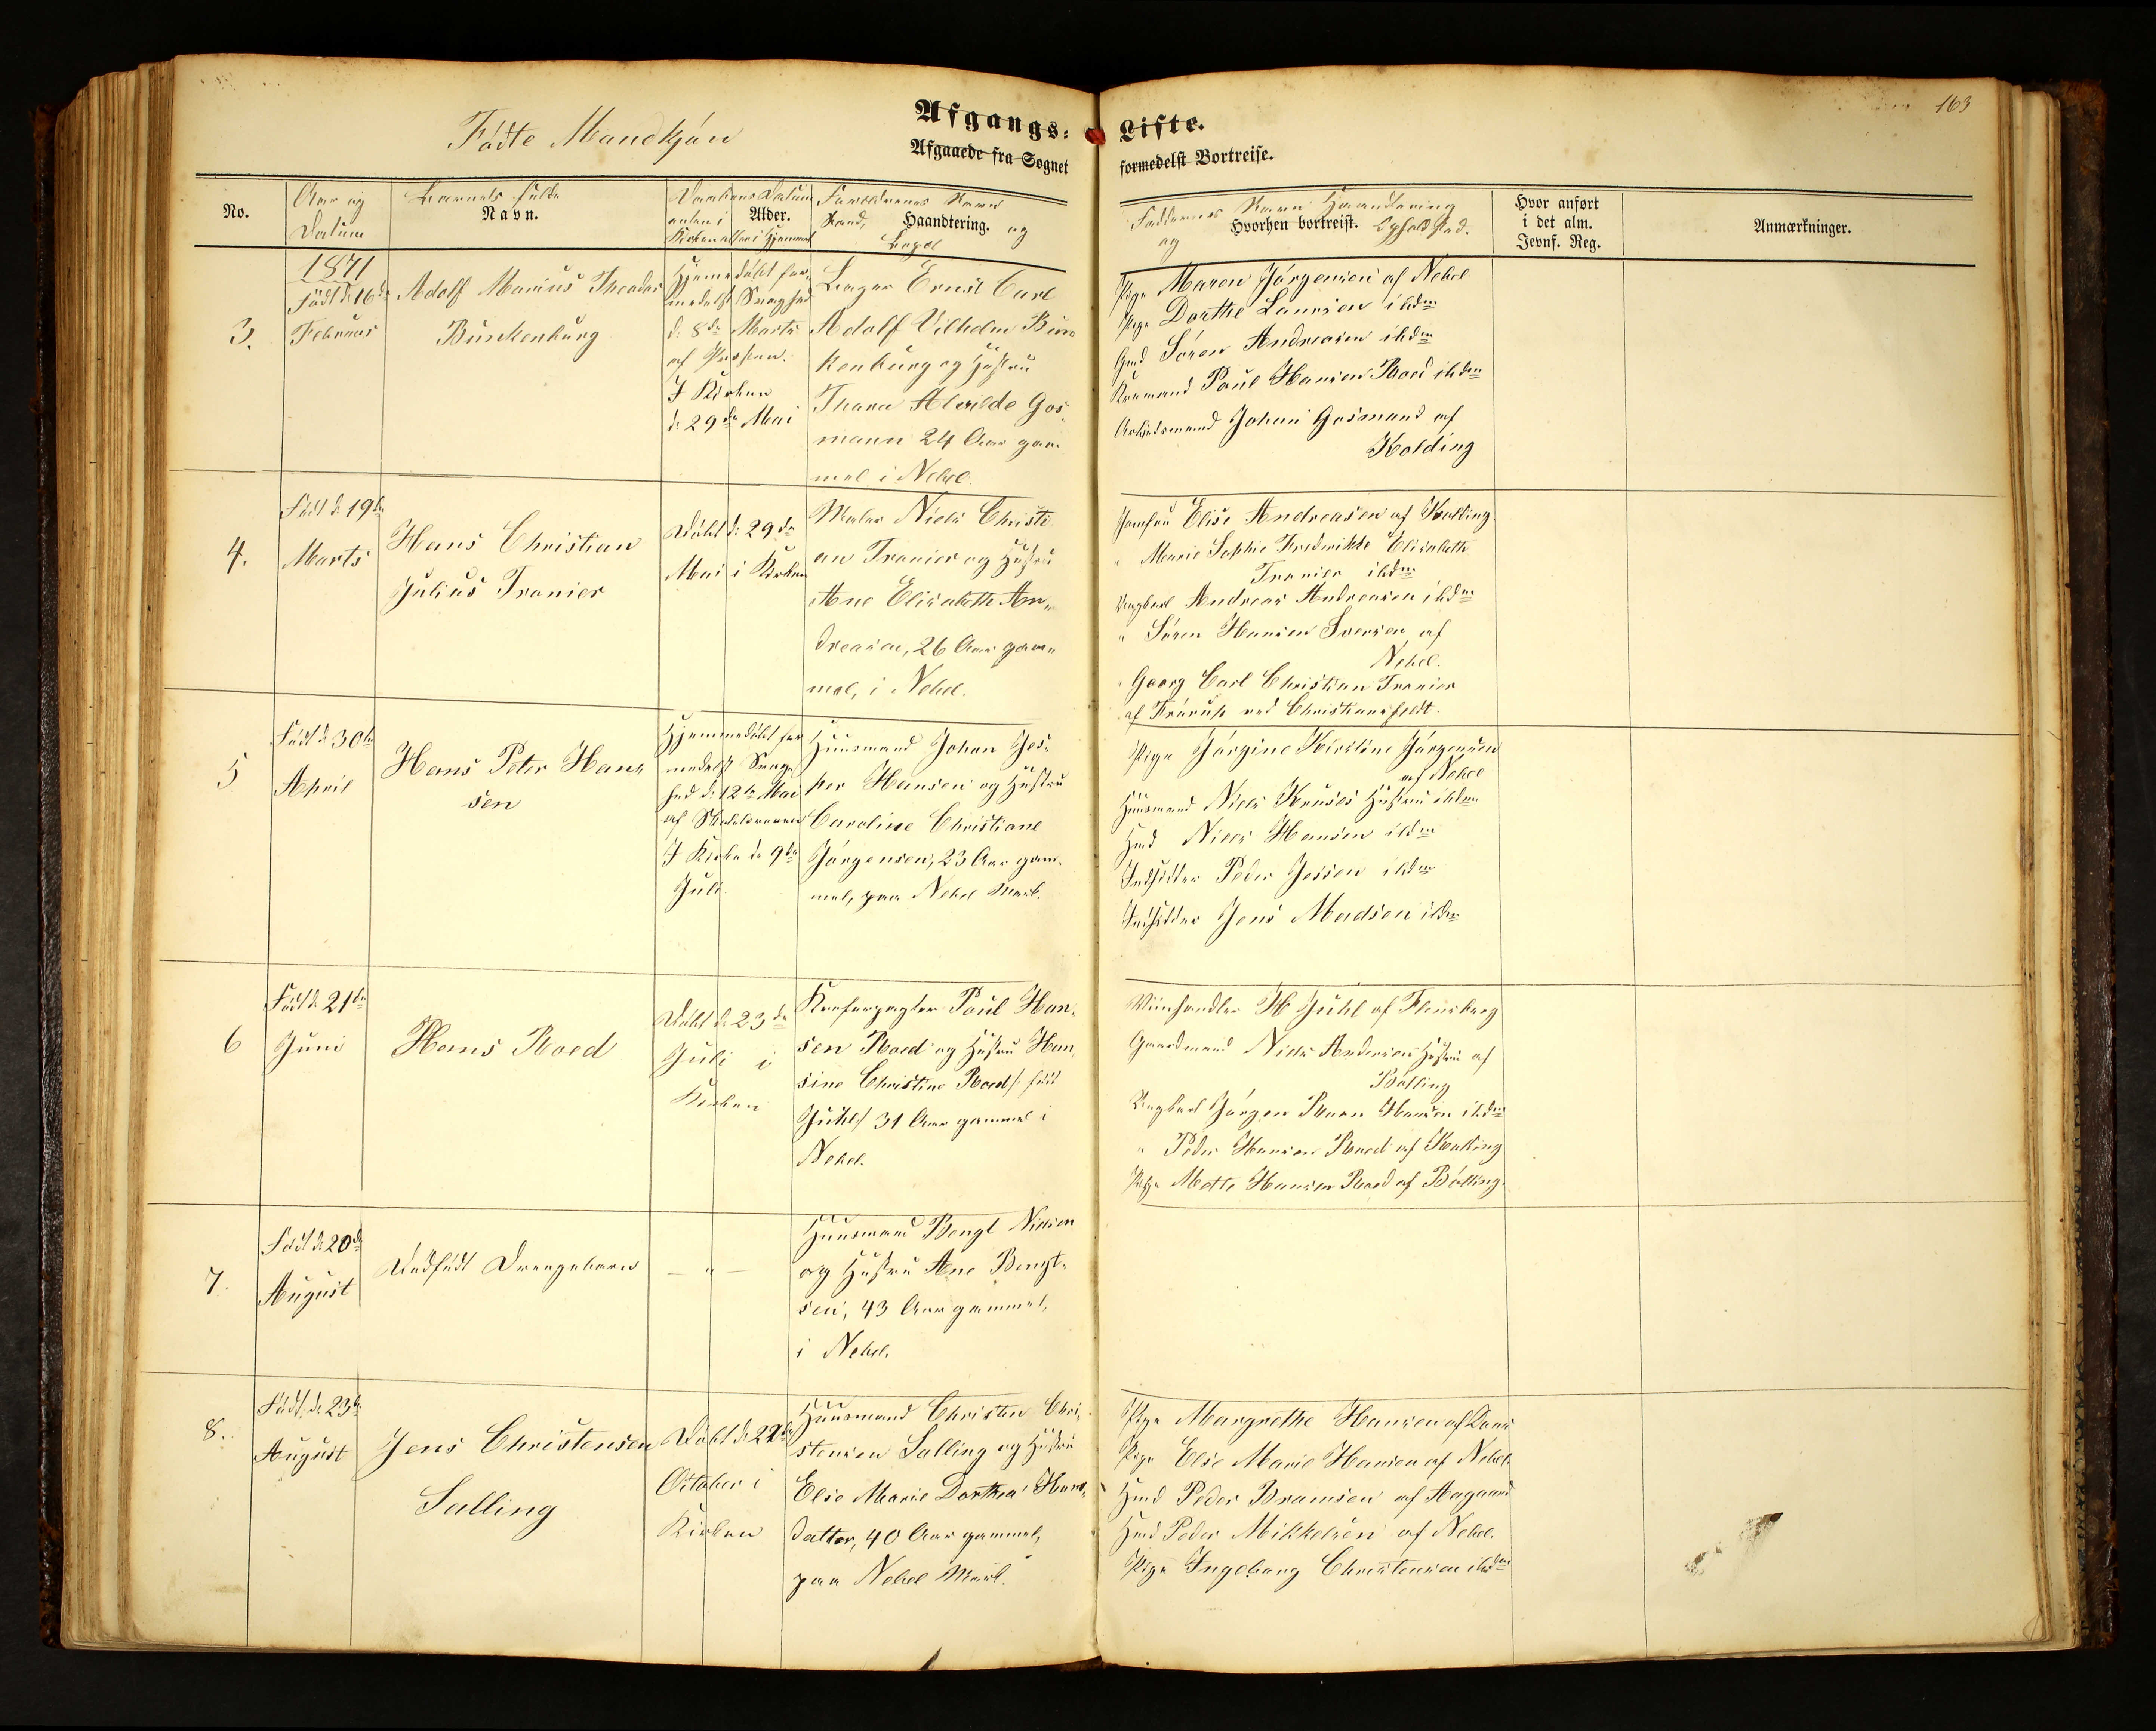 163
Fødte Mandkjøn
Afgangs- Liste.
Afgaaede fra Sognet formedelst Bortreise.
No.
Aar og
Datum
Barnets fulde
Navn.
Daabens Datum
enten i
Alder.
Kirken eller i Hjemmet
Forældrenes Navn
Stand, Haandtering. og
Bopæl
Faddernes Navn Haandtering
og Hvorhen bortreist. Opholdsted.
Hvor anført
i det alm.
Jevnf. Reg.
Anmærkninger.
1871
3.
Født d. 16de
Februar
Adolf Marius Theodor
Bunkenburg
Hjemmedøbt for-
medelst Svaghed
d. 8de Marts
af Præsten.
I Kirken
d. 29de Mai
Bager Ernst Carl
Adolf Vilhelm Bun-
kenburg og Hustru
Thora Alvilde Gos-
mann 24 Aar gam-
mel i Nebel.
Pige Maren Jørgensen af Nebel
Pige Dorthe Laursen ibdm
Gmd Søren Andreasen ibdm
Kromand Poul Hansen Roed ibdm
Arbeidsmand Johan Gosmand af
Kolding
4.
Født d. 19de
Marts
Hans Christian
Julius Tranier
Døbt d. 29de
Mai i Kirken
Maler Niels Christi-
an Tranier og Hustru
Ane Elisabeth An-
dreasen, 26 Aar gam-
mel, i Nebel.
Jomfru Elise Andreasen af Kolding.
" Marie Sophie Frederikke Elisabeth
Tranier ibdm
Ungkarl Andreas Andreasen ibdm
" Søren Hansen Iversen af
Nebel.
" Georg Carl Christian Tranier
af Frørup ved Christiansfeldt.
5
Født d. 30te
April
Hans Peter Han-
sen
Hjemmedøbt for-
medelst Svag-
hed d. 12te Mai
af Skolelæreren
I Kirken d. 9de
Juli
Huusmand Johan Jes-
per Hansen og Hustru
Caroline Christiane
Jørgensen, 23 Aar gam-
mel, paa Nebel Mark.
Pige Jørgine Kirstine Jørgensen
af Nebel
Huusmand Niels Kruses Hustru ibdm
Hmd Niels Hansen ibdm
Indsidder Peder Jessen ibdm
Indsidder Jens Madsen ibdm
6
Født d. 21de
Juni
Hans Roed
Døbt d. 23de
Juli i
Kirken
Kroforpagter Poul Han-
sen Roed og Hustru Han-
sine Christine Roed /: født
Juhl :/ 31 Aar gammel i
Nebel.
Viinhandler H Juhl af Flensborg
Gaardmand Niels Andersens Hustru af
Bølling
Ungkarl Jørgen Hansen ibdm
" Peder Hansen Roed af Kolding
Pige Mette Hansen Roed af Bølling.
7.
Født d. 20de
August
Dødfødt Drengebarn
— " —
Huusmand Bengt Nielsen
og Hustru Ane Bengt-
sen, 43 Aar gammel,
i Nebel.
8.
Født d. 23de
August
Jens Christensen
Salling
Døbt d. 22de
October i
Kirken
Huusmand Christen Chri-
stensen Salling og Hustru
Else Marie Dorthea Hans-
datter, 40 Aar gammel,
paa Nebel Mark.
Pige Margrethe Hansen af
Pige Else Marie Hansen af Nebel.
Hmd Peder Bramsen af Aagaard
Hmd Peder Mikkelsen af Nebel.
Pige Ingeborg Christensen ibdm